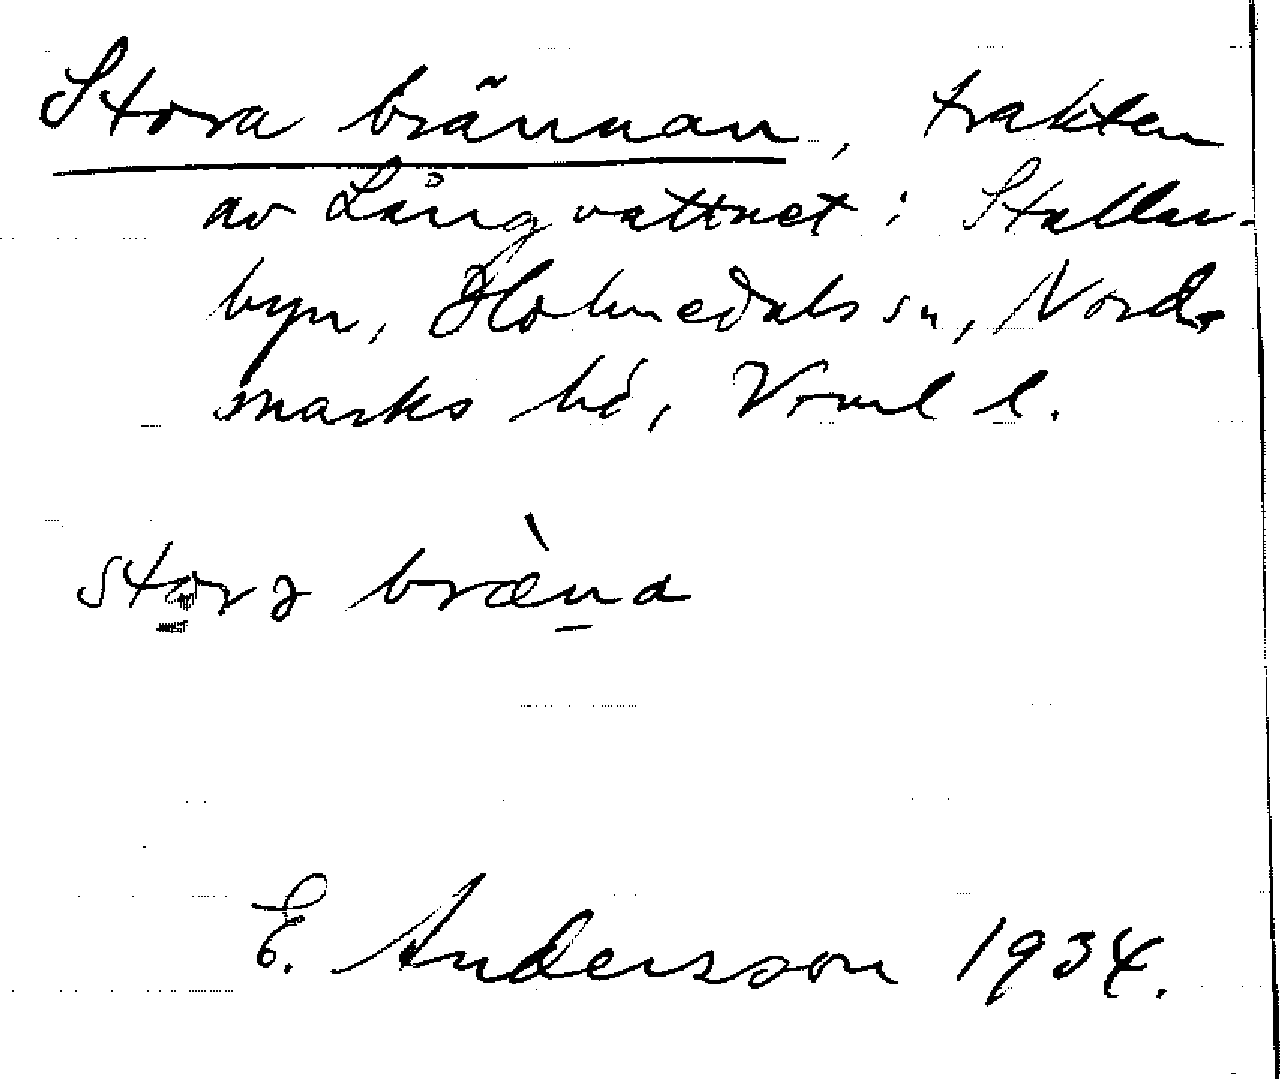 Stora brännan, trakten
av Långvattnet i Stallar-
byn, Holmedals sn, Nord-
marks hd, Vrml l.
storə bræ̀na
E. Andersson 1934.